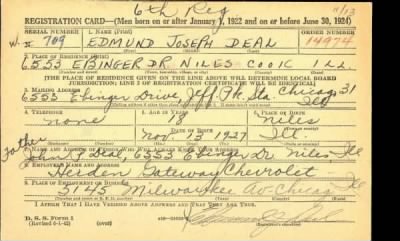 6th Reg
11/13
REGISTRATION CARD—(Men born on or after January 1, 1922 and on or before June 30, 1924)
SERIAL NUMBER 1. NAME (Print) ORDER NUMBER
W- 709 EDMUND JOSEPH DEAL 14974
2. PLACE OF RESIDENCE (Print)
6553 EBINGER DR NILES COOK ILL.
[THE PLACE OF RESIDENCE GIVEN ON THE LINE ABOVE WILL DETERMINE LOCAL BOARD
JURISDICTION; LINE 2 OF REGISTRATION CERTIFICATE WILL BE IDENTICAL]
3. MAILING ADDRESS
6553 Ebinger Drive Jeff. Pk. Sta. Chicago 31 Ill
4. TELEPHONE 5. AGE IN YEARS 6. PLACE OF BIRTH
none 18 Niles
DATE OF BIRTH
Nov 13 1927 Ill.
Father
7. NAME AND ADDRESS OF PERSON WHO WILL ALWAYS KNOW YOUR ADDRESS
John Deal, 6553 Ebinger Dr Niles Ill
8. EMPLOYER'S NAME AND ADDRESS
Gateway Chevrolet
9. PLACE OF EMPLOYMENT OR BUSINESS
5145 Milwaukee Av Chicago Ill
I AFFIRM THAT I HAVE VERIFIED ABOVE ANSWERS AND THAT THEY ARE TRUE.
D. S. S. Form 1
(Revised 6-1-42) (over)